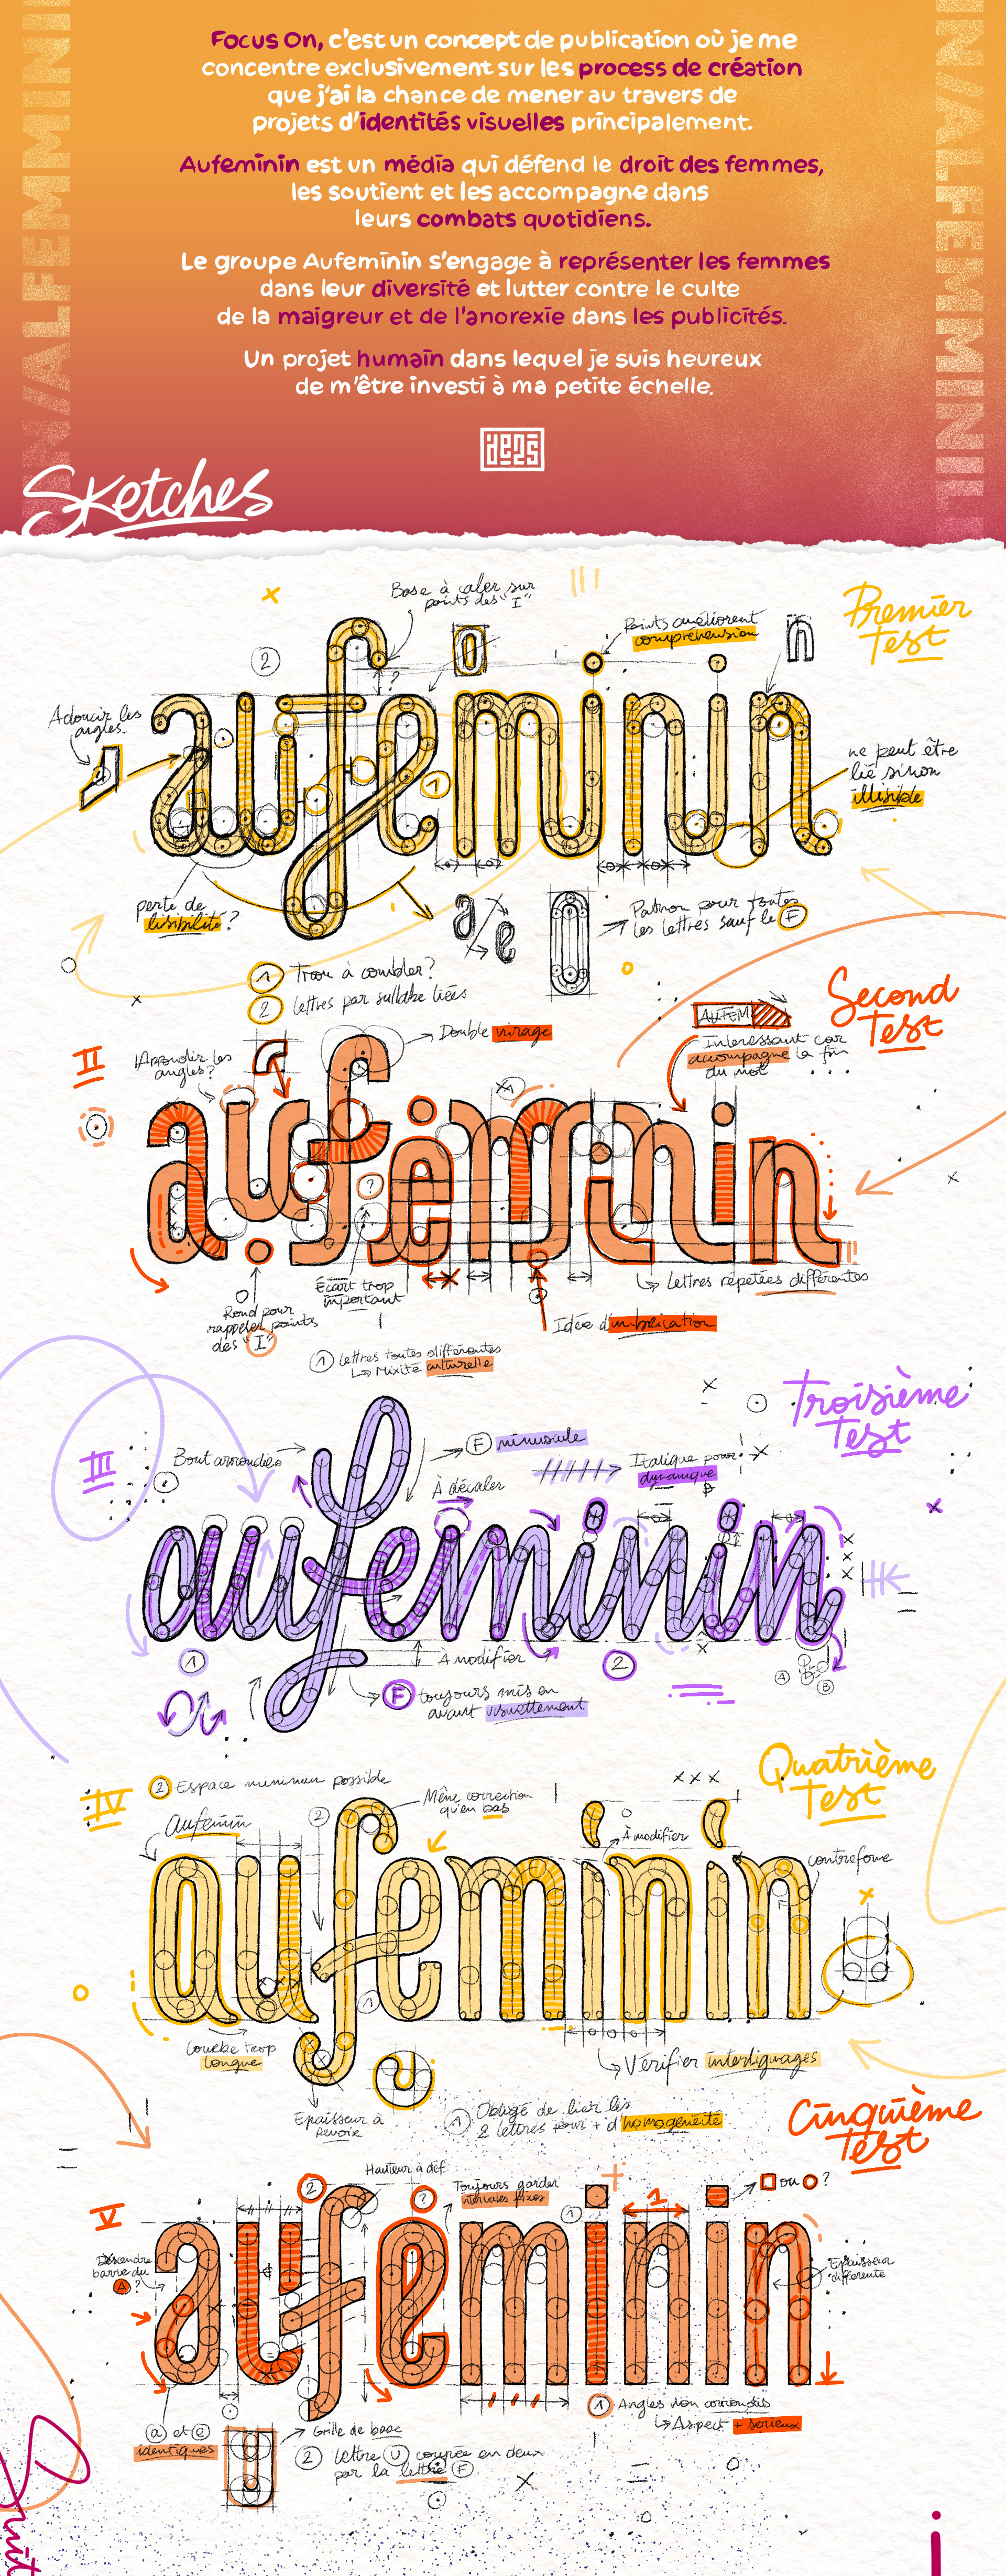 Focus On, c'est un concept de publication où je me
concentre exclusivement sur les process de création
que j'ai la chance de mener au travers de
projets d'identités visuelles principalement.
Aufeminin est un média qui défend le droit des femmes,
les soutient et les accompagne dans
leurs combats quotidiens.
Le groupe Aufeminin s'engage à représenter les femmes
dans leur diversité et lutter contre le culte
de la maigreur et de l'anorexie dans les publicités.
Un projet humain dans lequel je suis heureux
de m'être investi à ma petite échelle.
Sketches
Premier
Test
Base à caler sur
points des "I"
Points améliorent
compréhension
2
?
n
Adoucir les
angles.
aufeminin
1
ne peut être
lié sinon
illisible
perte de
lisibilité ?
a/e
Patron pour toutes
les lettres sauf le F
1 Trou à combler ?
2 Lettres par syllabe liées
Second
Test
II
Arrondir les
angles ?
Double virage
AUFEM
Interessant car
accompagne la fin
du mot
aufeminin
?
Écart trop
important
Lettres répetées différentes
Rond pour
rappeler points
des "I"
Idée d'imbrication
1 Lettres toutes différentes
Mixité culturelle
Troisième
Test
III
Bout arrondie
F minuscule
À décaler
Italique pour
dynamique
aufeminin
1
A modifier
2
F toujours mis en
avant visuellement
A
B
Quatrième
Test
IV
2 Espace minimum possible
Aufeminin
2
Même correction
qu'en bas
À modifier
contreforme
aufeminin
1
Courbe trop
longue
Vérifier interlignages
Épaisseur à
revoir
1 Obligé de lier les
2 lettres pour + d'homogénéité
Cinquième
Test
V
2
Hauteur à def.
?
Toujours garder
intervales fixes
1
1
ou ?
Descendre
barre du
A ?
aufeminin
Epaisseur
différente
a et e
identiques
Grille de base
1 Angles non arrondis
Aspect + serieux
2 Lettre U coupée en deux
par la lettre F
i